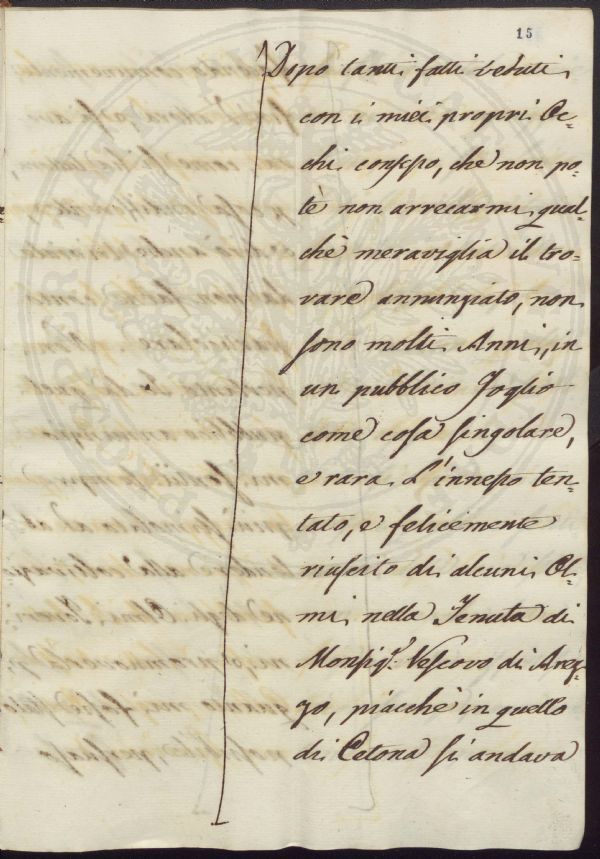 15
Dopo tanti fatti veduti
con i miei propri Oc-
chi confesso, che non po-
tè non arrecarmi qual-
chè meraviglia il tro-
vare annunziato, non
sono molti Anni, in
un pubblico Foglio
come cosa singolare,
e rara L'innesto ten-
tato, e felicemente
riuscito di alcuni Ol-
mi nella Tenuta di
Monsig.r Vescovo di Arez-
zo, piacchè in quello
di Cetona si andava